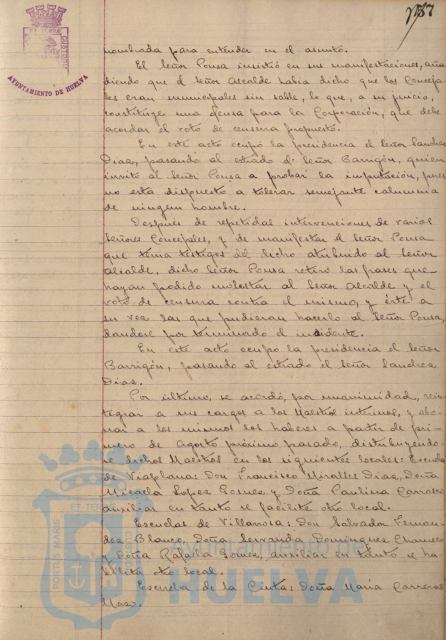 1787
AYUNTAMIENTO DE HUELVA
nombrada para entender en el asunto.
El Señor Ponsa insistió en sus manifestaciones, aña
diendo que el Señor Alcalde había dicho que los Conceja
les eran municipales sin sable, lo que, a su juicio,
constituye una ofensa para la Corporación, que debe
acordar el voto de censura propuesto.
En este acto ocupó la presidencia el Señor
Díaz, pasando al estrado el Señor Barrigón, quien
invitó al Señor Ponsa a probar la imputación, pues
no está dispuesto a tolerar semejante calumnia
de ningún hombre.
Después de repetidas intervenciones de varios
Señores Concejales, y de manifestar el Señor Ponsa
que tenía testigos del hecho atribuido al Señor
Alcalde, dicho Señor Ponsa retiró las frases que
hayan podido molestar al Señor Alcalde y el
voto de censura contra el mismo, y éste a
su vez las que pudieran hacerlo al Señor Ponsa,
dándose por terminado el incidente.
En este acto ocupó la presidencia el Señor
Barrigón, pasando al estrado el Señor
Díaz.
Por último, se acordó, por unanimidad, rein
tegrar a sus cargos a los Maestros interinos, y abo
nar a los mismos los haberes a partir de pri
mero de Agosto próximo pasado, distribuyendo
se dichos Maestros en los siguientes locales: Escuelas
de Viaplana: Don Francisco Miralles Díaz, Doña
Micaela López Gómez y Doña Paulina
auxiliar en tanto se facilite otro local.
Escuelas de Villanosa: Don Salvador Fernán
dez Blanco, Doña Servanda Domínguez
y Doña Rafaela Gómez, auxiliar en tanto se ha
bilita otro local.
Escuela de la Cinta: Doña María Carreras
Mazo.
PORTUS MARIS ET TERRAE
HUELVA